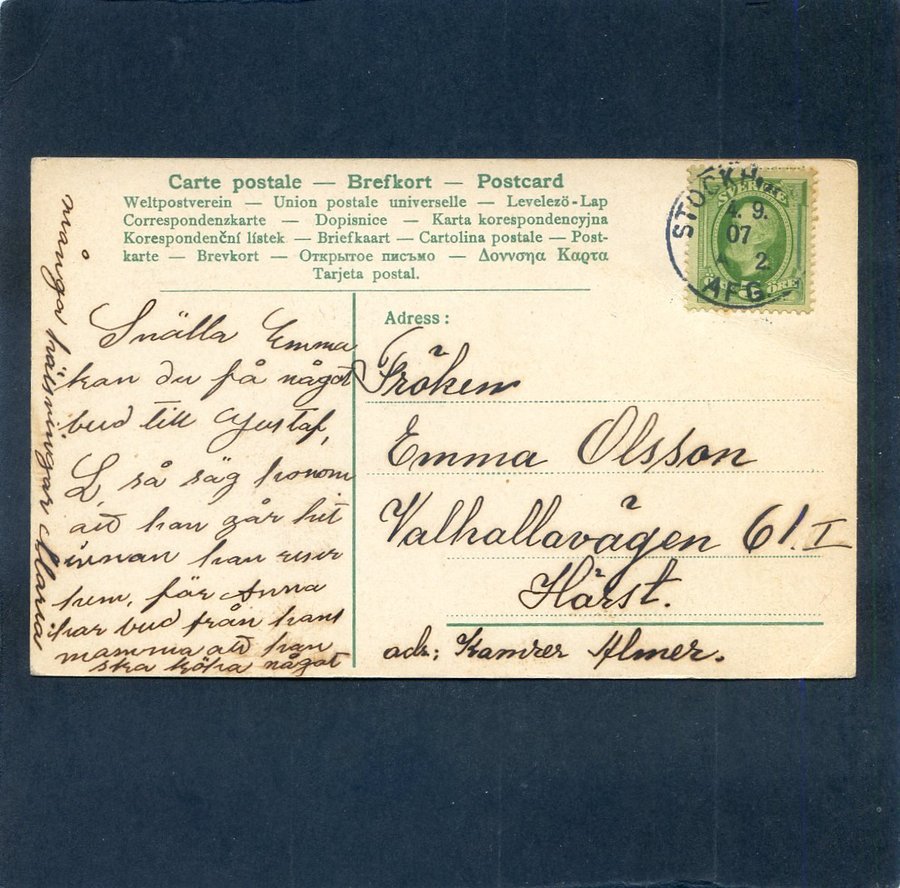 Carte postale — Brefkort — Postcard
Weltpostverein — Union postale universelle — Levelező-Lap
Correspondenzkarte — Dopisnice — Karta korespondencyjna
Korespondenční lístek — Briefkaart — Cartolina postale — Post-
karte — Brevkort — Открытое письмо — Δοννσηα Καρτα
Tarjeta postal.
STOCKH
4. 9.
07
2.
AFG.
SVERIGE
ÖRE
Snälla Emma
kan du få något
bud till Gustaf,
så säg honom
att han går hit
innan han reser
hem, för Anna
har bud från hans
mamma att han
ska köpa något
många hälsningar Maria
Adress:
Fröken
Emma Olsson
Valhallavägen 61. I
Härst.
adr: Kamrer Almer.